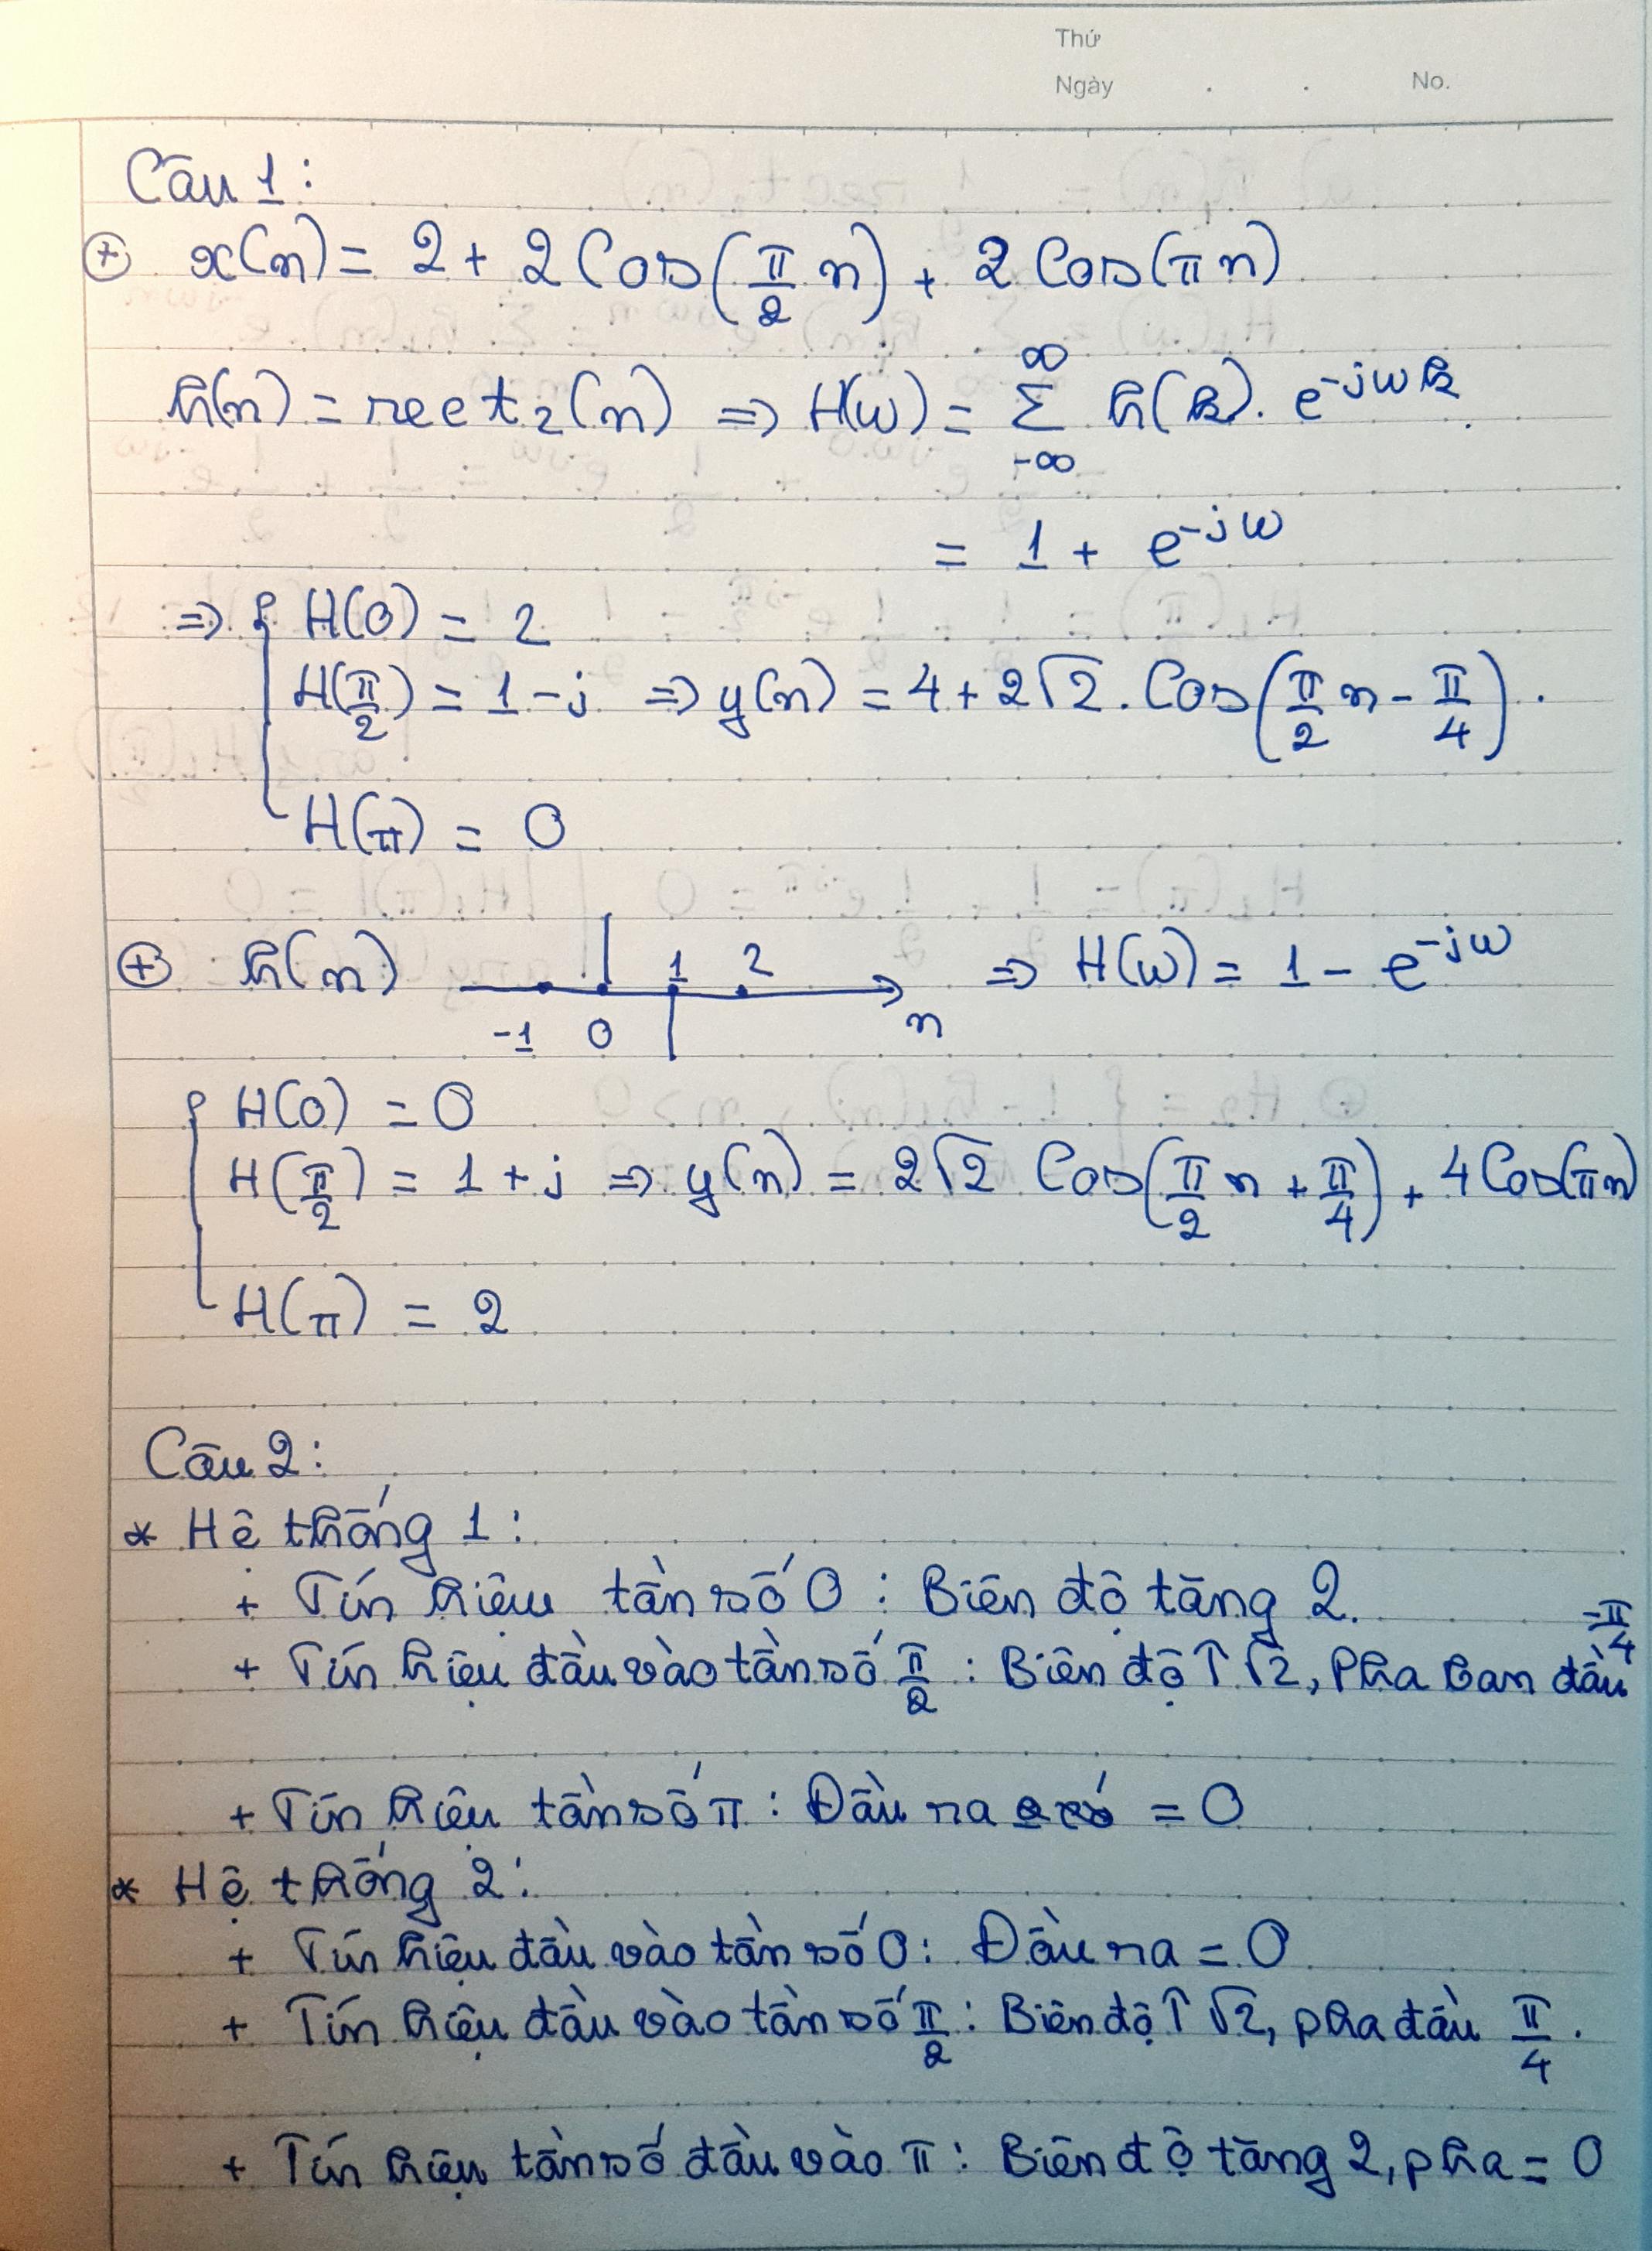 Thứ
Ngày . . No.
Câu 1:
⊕ x(n) = 2 + 2 Cos(π/2 n) + 2 Cos(πn)
h(n) = rect₂(n) => H(ω) = ∞ Σ -∞ h(k). e^-jωk
= 1 + e^-jω
=> { H(0) = 2
H(π/2) = 1 - j => y(n) = 4 + 2√2 . Cos(π/2 n - π/4) .
H(π) = 0
⊕ h(n) -1 0 1 2 n => H(ω) = 1 - e^-jω
{ H(0) = 0
H(π/2) = 1 + j => y(n) = 2√2 Cos(π/2 n + π/4) + 4 Cos(πn)
H(π) = 2
Câu 2:
* Hệ thống 1:
+ Tín hiệu tần số 0 : Biên độ tăng 2.
+ Tín hiệu đầu vào tần số π/2 : Biên độ ↑ √2, Pha ban đầu -π/4
+ Tín hiệu tần số π : Đầu ra = 0
* Hệ thống 2:
+ Tín hiệu đầu vào tần số 0: Đầu ra = 0
+ Tín hiệu đầu vào tần số π/2 : Biên độ ↑ √2, pha đầu π/4 .
+ Tín hiệu tần số đầu vào π : Biên độ tăng 2, pha = 0